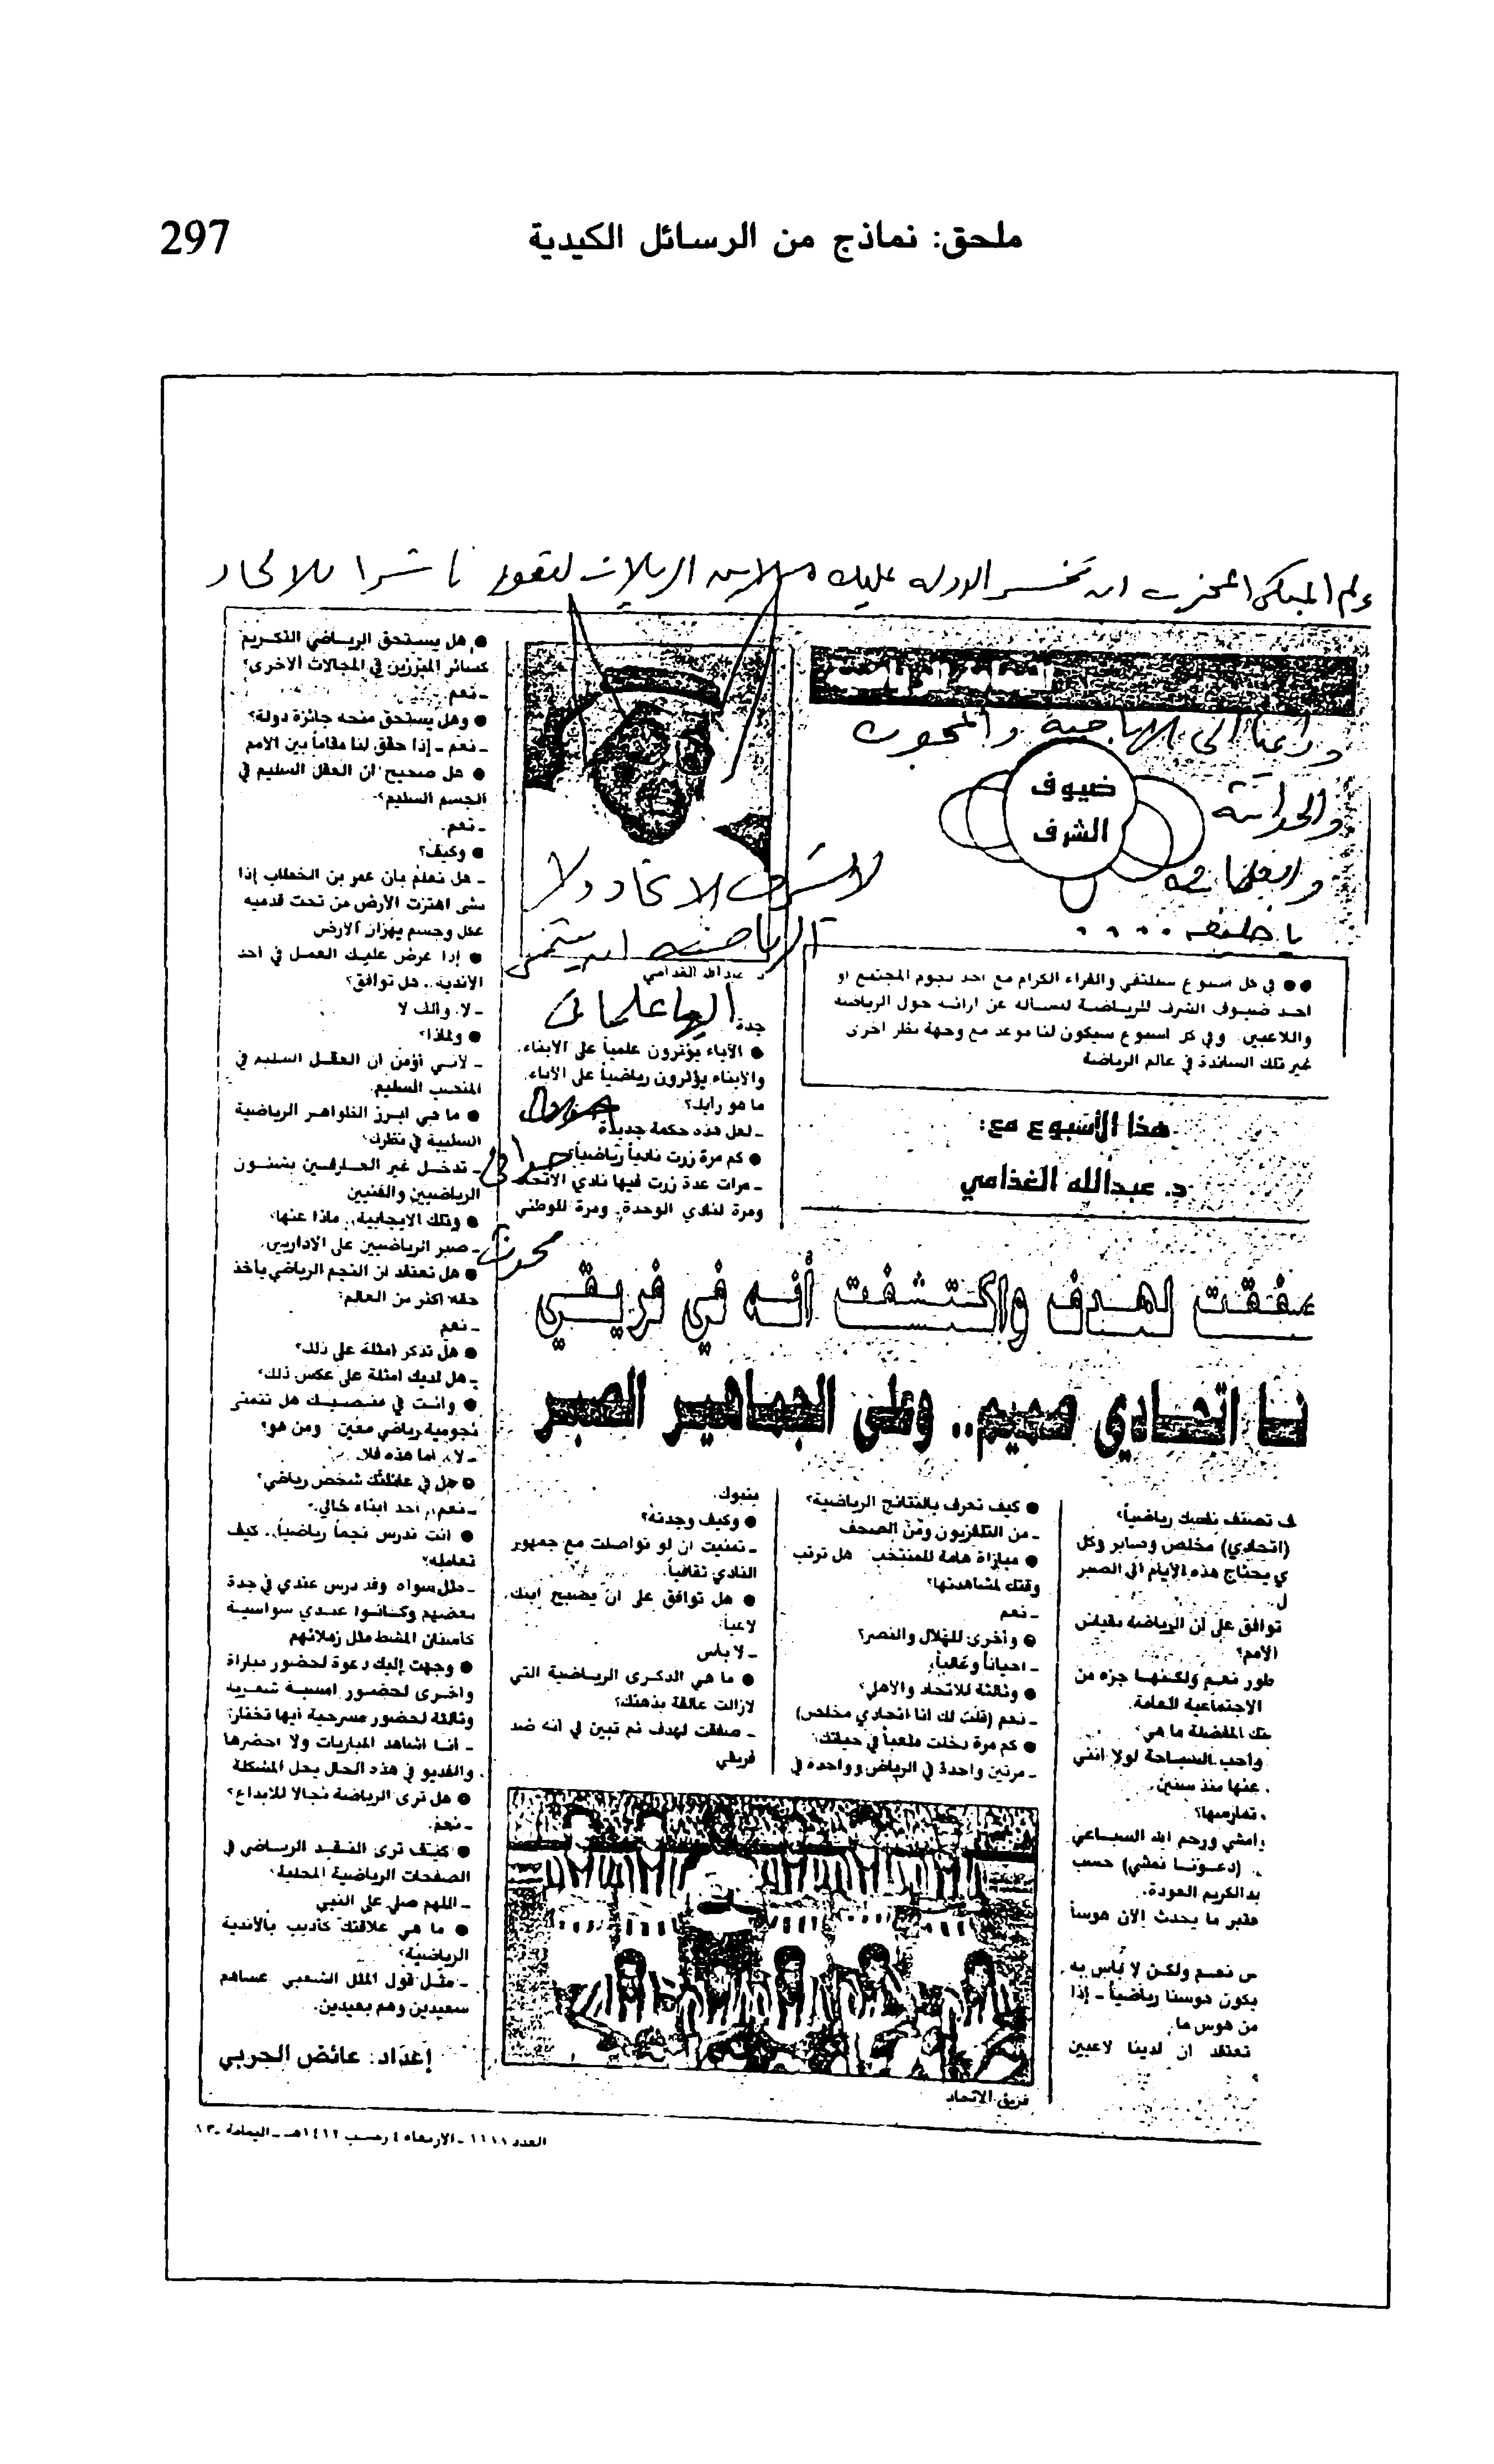 ملحق: نماذج من الرسائل الكيدية
297
الدولة عليك الريالات لتعود ناشرا للالحاد
والحداثة
ضيوف
الشرف
لا يشرف الاتحاد ولا
الرياضة ان ينتمي
اليها علماني
حداثي
د. عبدالله الغذامي
●● في كل اسبوع سنلتقي والقراء الكرام مع احد نجوم المجتمع او
احد ضيوف الشرف للرياضة لنسأله عن ارائه حول الرياضة
واللاعبين. وفي كل اسبوع سيكون لنا موعد مع وجهة نظر اخرى
غير تلك السائدة في عالم الرياضة
هذا الأسبوع مع:
د. عبدالله الغذامي
صفقت لهدف واكتشفت أنه في فريقي
نا اتحادي صميم.. وعلى الجماهير الصبر
ف تصنف نفسك رياضياً؟
(اتحادي) مخلص وصابر وكل
ي يحتاج هذه الأيام الى الصبر
ل.
توافق على ان الرياضة مقياس
الأمم؟
طور نعم ولكنها جزء من
الاجتماعية العامة.
تك المفضلة ما هي؟
واحب السباحة لولا انني
. عنها منذ سنين.
. تمارسها؟
امشي ورحم الله السباعي
. (دعونا نمشي) حسب
بدالكريم العودة.
عتبر ما يحدث الآن هوساً
س نعم ولكن لا بأس به
يكون هوسنا رياضياً - إذا
من هوس ما.
تعتقد ان لدينا لاعبين
؟
● كيف تعرف بالنتائج الرياضية؟
- من التلفزيون ومن الصحف
● مباراة هامة للمنتخب هل ترتب
وقتك لمشاهدتها؟
- نعم
● وأخرى للهلال والنصر؟
- احياناً وغالباً.
● وثالثة للاتحاد والاهلي؟
- نعم (قلت لك انا اتحادي مخلص)
● كم مرة دخلت ملعباً في حياتك؟
- مرتين واحدة في الرياض وواحدة في
جدة
● الآباء يؤثرون علمياً على الابناء.
والأبناء يؤثرون رياضياً على الآباء
ما هو رأيك؟
- لعل هذه حكمة جديدة
● كم مرة زرت نادياً رياضياً؟
- مرات عدة زرت فيها نادي الاتحاد
ومرة لنادي الوحدة. ومرة للوطني
بتبوك.
● وكيف وجدته؟
- تمنيت ان لو تواصلت مع جمهور
النادي ثقافياً.
● هل توافق على ان يصبح ابنك
لاعباً.
- لا بأس
● ما هي الذكرى الرياضية التي
لازالت عالقة بذهنك؟
- صفقت لهدف ثم تبين لي أنه ضد
فريقي
فريق الاتحاد
● هل يستحق الرياضي التكريم
كسائر المبرزين في المجالات الاخرى؟
- نعم
● وهل يستحق منحه جائزة دولة؟
- نعم - إذا حقق لنا مقاماً بين الامم
● هل صحيح ان العقل السليم في
الجسم السليم؟
- نعم.
● وكيف؟
- هل تعلم بان عمر بن الخطاب إذا
مشى اهتزت الأرض من تحت قدميه
عقل وجسم يهزان الأرض
● إذا عرض عليك العمل في احد
الأندية.. هل توافق؟
- لا. والف لا
● ولماذا؟
- لأنني أؤمن ان العقل السليم في
المنصب السليم.
● ما هي ابرز الظواهر الرياضية
السلبية في نظرك؟
- تدخل غير العارفين بشئون
الرياضيين والفنيين
● وتلك الايجابية.. ماذا عنها؟
- صبر الرياضيين على الاداريين.
● هل تعتقد ان النجم الرياضي يأخذ
حقه اكثر من العالم؟
- نعم
● هل تذكر امثلة على ذلك؟
- هل لديك امثلة على عكس ذلك؟
● وانت في منصبك هل تتمنى
نجومية رياضي معين ومن هو؟
- لا.. اما هذه فلا.
● هل في عائلتك شخص رياضي؟
- نعم.. احد ابناء خالي.
● انت تدرس نجماً رياضياً.. كيف
تعامله؟
- مثل سواه وقد درس عندي في جدة
بعضهم وكانوا عندي سواسية
كأسنان المشط مثل زملائهم
● وجهت إليك دعوة لحضور مباراة
واخرى لحضور امسية شعرية
وثالثة لحضور مسرحية أيها تختار؟
- أنا اشاهد المباريات ولا احضرها
والفديو في هذه الحال يحل المشكلة
● هل ترى الرياضة مجالا للابداع؟
- نعم.
● كيف ترى النقد الرياضي في
الصفحات الرياضية المحلية؟
- اللهم صلي على النبي
● ما هي علاقتك كأديب بالأندية
الرياضية؟
- مثل قول المثل الشعبي عساهم
سعيدين وهم بعيدين.
إعداد: عائض الحربي
الاربعاء ٤ رجب ١٤١٢هـ - اليمامة